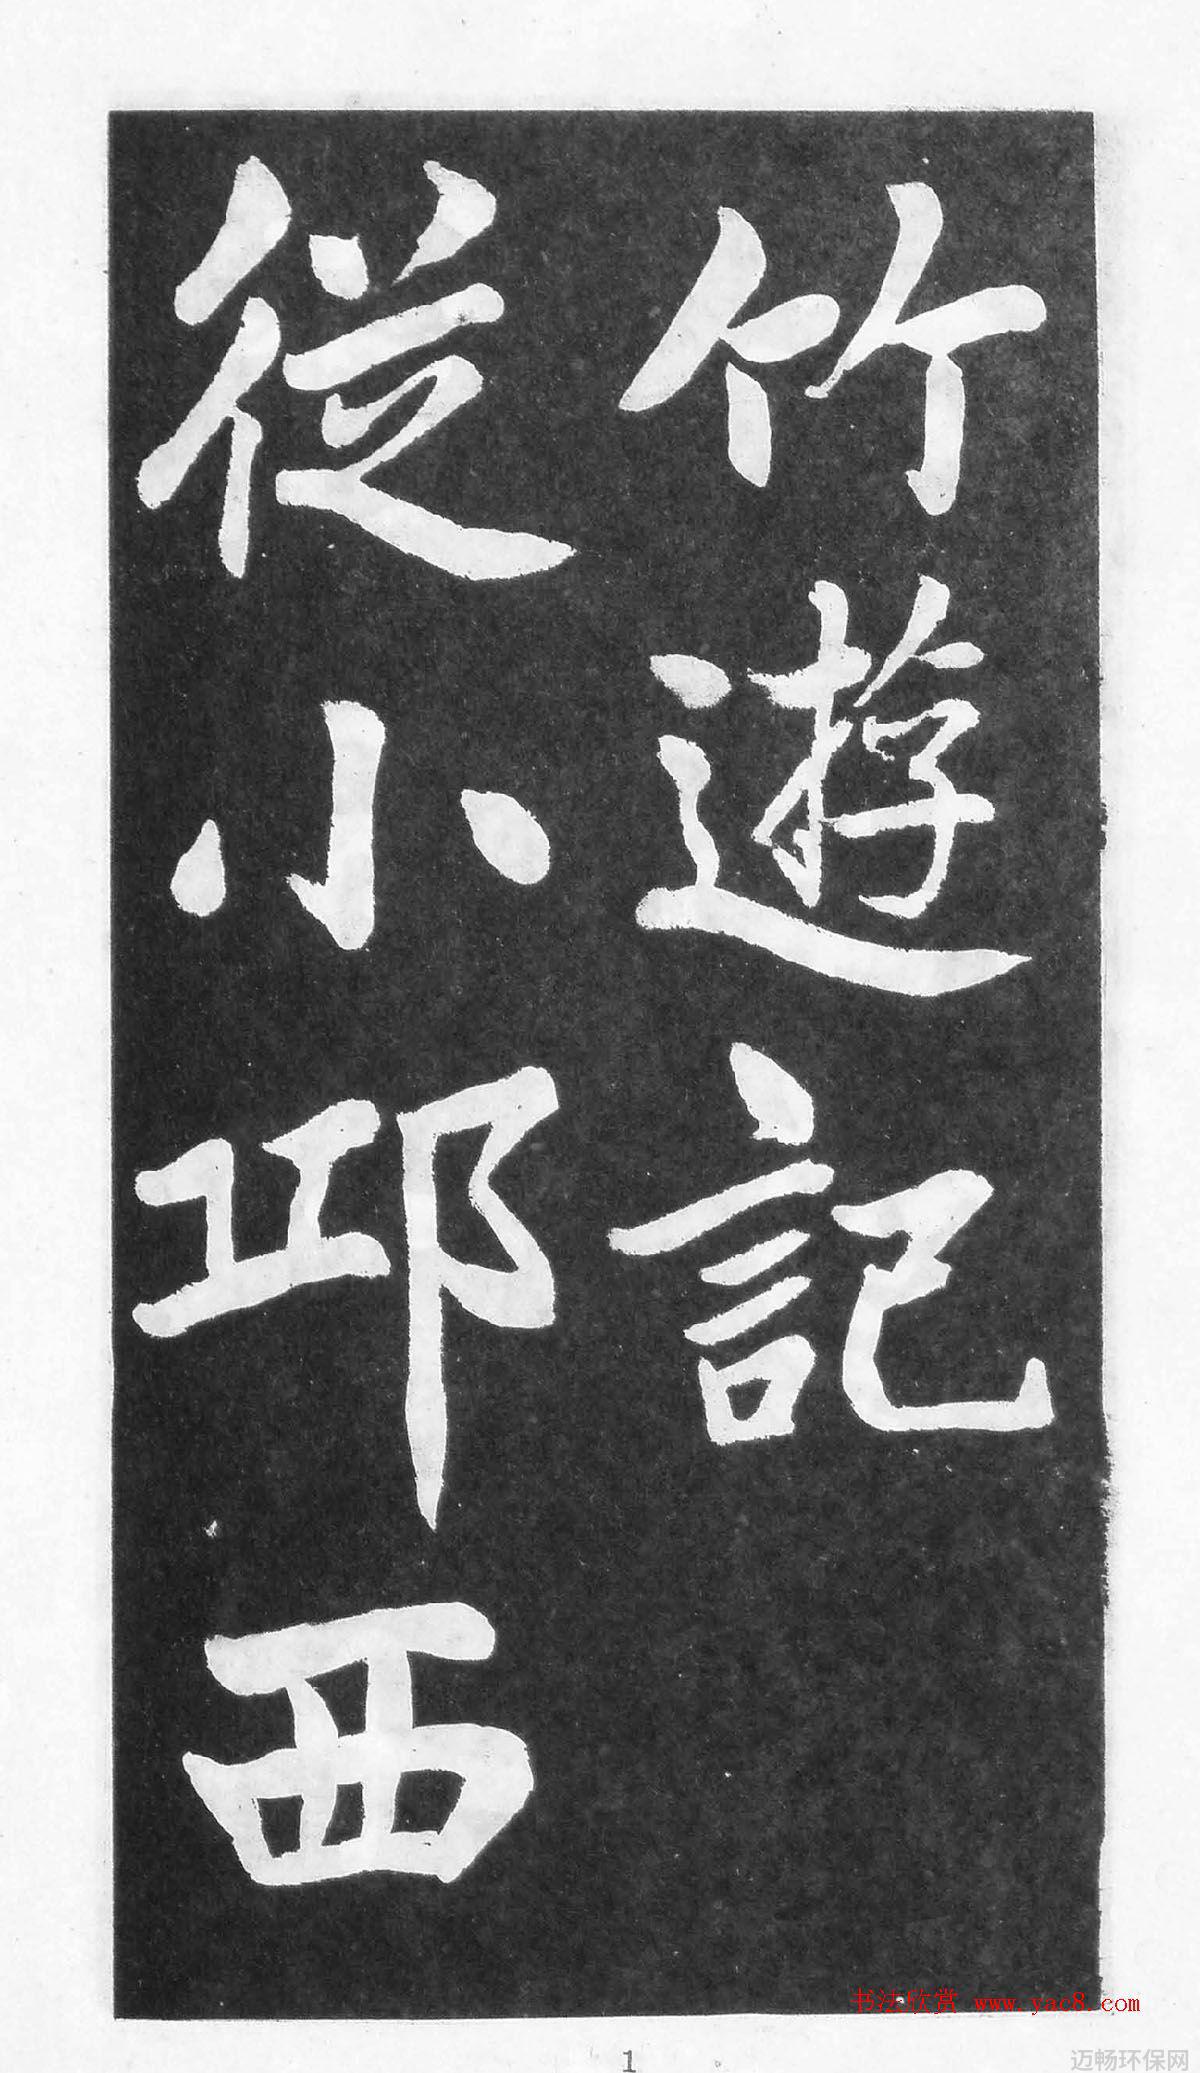 竹遊記
從小邱西
书法欣赏 www.yac8.com
1
迈畅环保网